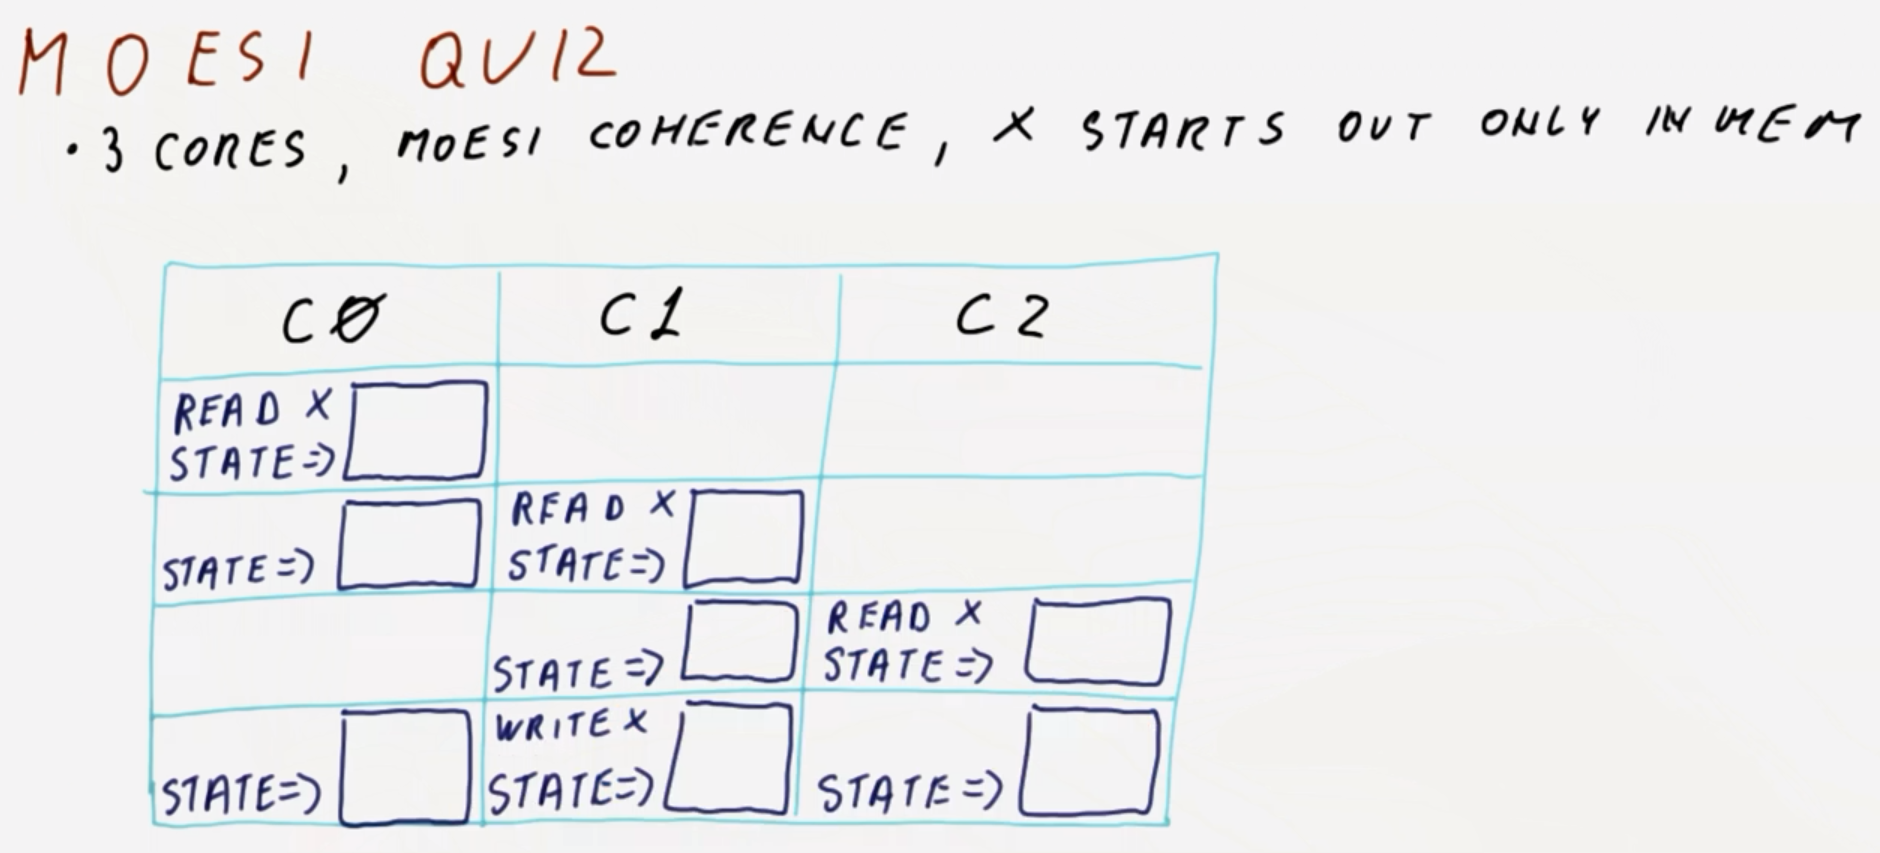 MOESI QUIZ
• 3 CORES, MOESI COHERENCE, X STARTS OUT ONLY IN MEM
C0 C1 C2
READ X
STATE=>
STATE=>
READ X
STATE=>
STATE=>
READ X
STATE=>
STATE=>
WRITE X
STATE=>
STATE=>